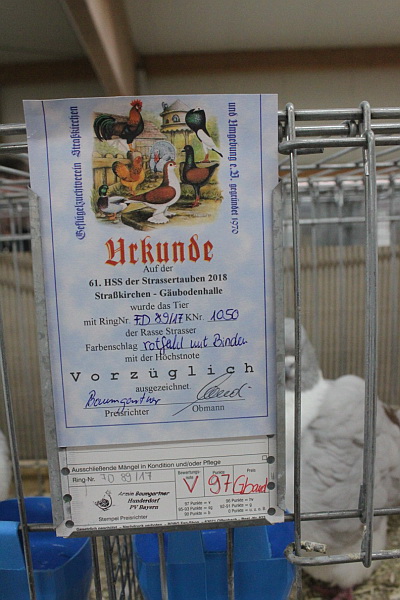 Geflügelzuchtverein Straßkirchen
und Umgebung e.V. gegründet 1970
Urkunde
Auf der
61. HSS der Strassertauben 2018
Straßkirchen - Gäubodenhalle
wurde das Tier
mit RingNr. 7D 89/17 KNr. 1050
der Rasse Strasser
Farbenschlag rotfahl mit Binden
mit der Höchstnote
Vorzüglich
ausgezeichnet.
Baumgartner
Preisrichter Obmann
Ausschließende Mängel in Kondition und/oder Pflege
Ring-Nr. 7D 89/17
Bewertungsnote Punkte Preis
V 97 Gband
Armin Baumgartner
Hunderdorf
PV Bayern
97 Punkte = v
Stempel Preisrichter